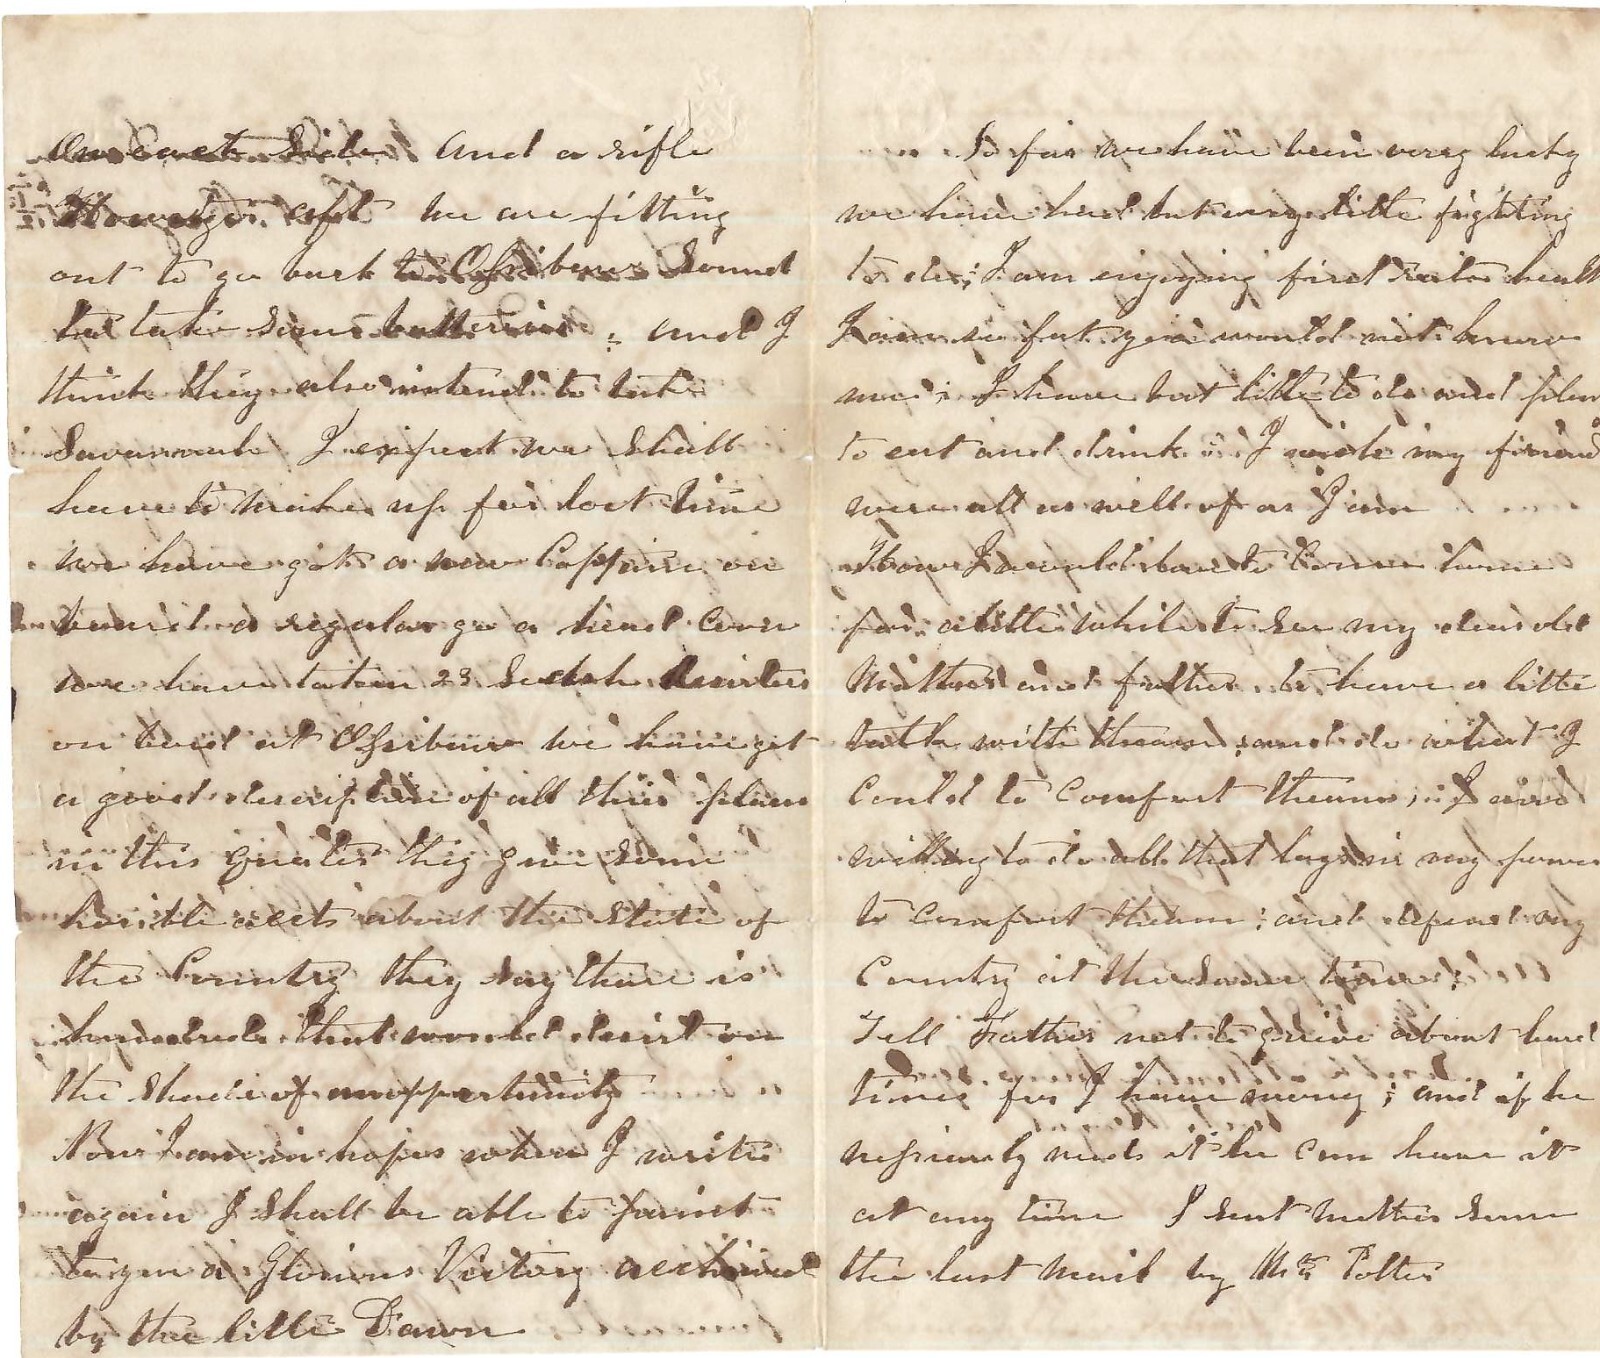 On each Side and a rifle
Howetzer aft we are fitting
out to go back to Ossibaw Sound
to take some batteries ; and I
think they also intend to take
Savannah I expect we shall
have to make up for lost time
we have got a new Cappaine on
board a regular go a head Coon
we have taken 23 Sesesh deserters
on board at Ossibaw we have got
a good description of all their plans
in this quarter they give some
horible acts about the State of
the Country they say there is
hundreds that would desirt on
the Shade of an oppertunity
Now I am in hopes when I write
again I Shall be able to paint
to you a Glorious Victory acchived
by the little Dawn
So far we have been very lucky
we have had but very little fighting
to do ; I am enjoying first rate health
I am so fat you would not know
me ; I have but little to do and plen
to eat and drink ; I wish my friend
were all as well of as I am
How I would love to Come home
for a little while to see my dear old
Mother and father to have a little
talk with them ; and do what I
Could to Comfort them ; I am
willing to do all that lays in my power
to Comfort them ; and defend my
Country at the same time ;
Tell Father not to grieve about hard
times for I have money ; and if he
nessicarly needs it he can have it
at any time I sent mother some
the last mail by Mrs Potter